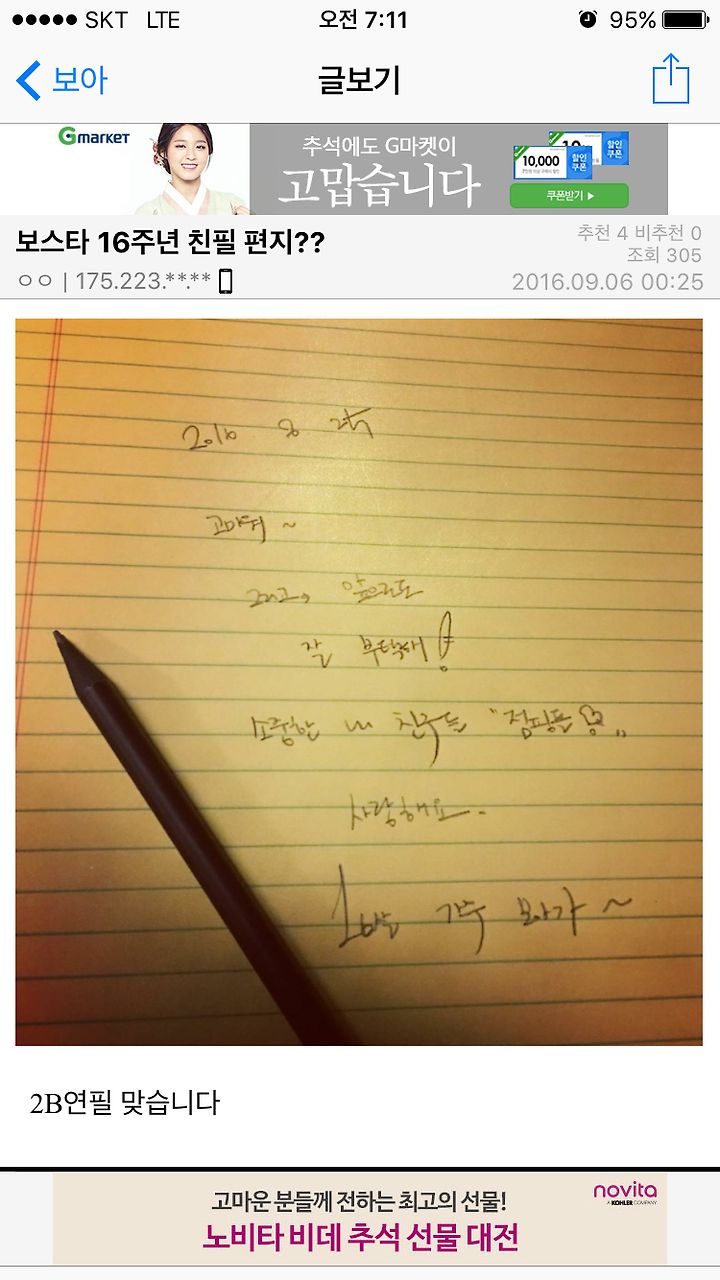 SKT LTE 오전 7:11 95%
보아 글보기
Gmarket
추석에도 G마켓이
고맙습니다
10,000
할인
쿠폰
할인
쿠폰
쿠폰받기
보스타 16주년 친필 편지??
추천 4 비추천 0
조회 305
ㅇㅇ | 175.223.**.**
2016.09.06 00:25
2016 8
고마워 ~
그리고, 앞으로도
잘 부탁해!
소중한 내 친구들 "점핑들"
사랑해요.
가수 보아가 ~
2B연필 맞습니다
고마운 분들께 전하는 최고의 선물!
노비타 비데 추석 선물 대전
novita
A KOHLER COMPANY